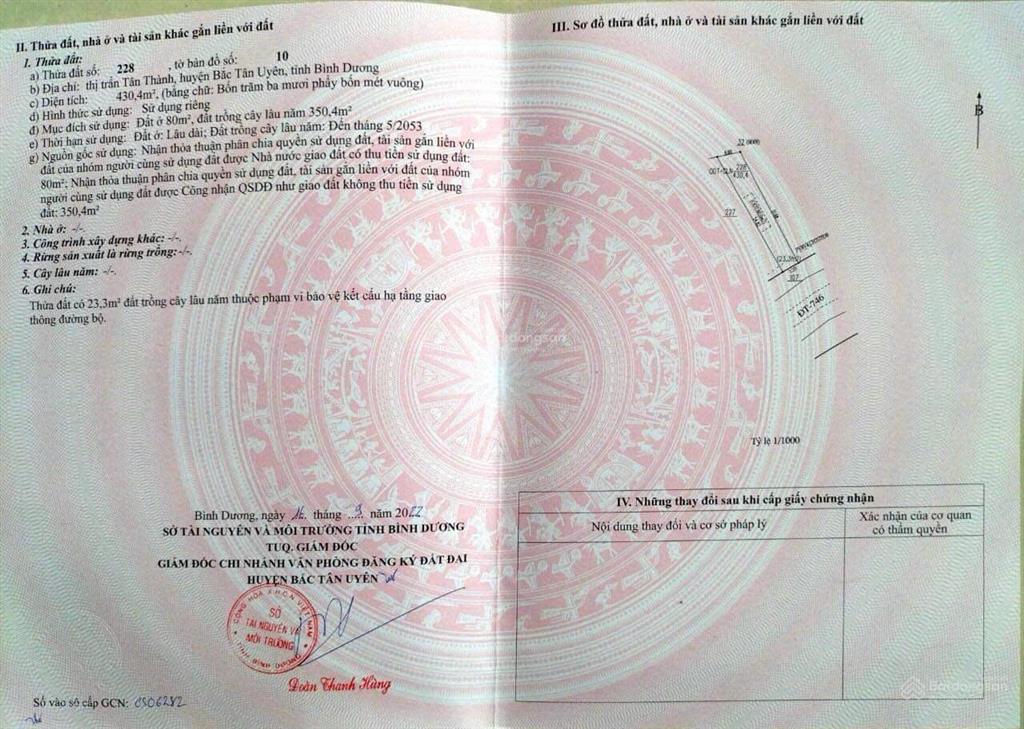 II. Thửa đất, nhà ở và tài sản khác gắn liền với đất
1. Thửa đất:
a) Thửa đất số: 228 , tờ bản đồ số: 10
b) Địa chỉ: thị trấn Tân Thành, huyện Bắc Tân Uyên, tỉnh Bình Dương
c) Diện tích: 430,4m², (bằng chữ: Bốn trăm ba mươi phẩy bốn mét vuông)
d) Hình thức sử dụng: Sử dụng riêng
đ) Mục đích sử dụng: Đất ở 80m², đất trồng cây lâu năm 350,4m²
e) Thời hạn sử dụng: Đất ở: Lâu dài; Đất trồng cây lâu năm: Đến tháng 5/2053
g) Nguồn gốc sử dụng: Nhận thỏa thuận phân chia quyền sử dụng đất, tài sản gắn liền với
đất của nhóm người cùng sử dụng đất được Nhà nước giao đất có thu tiền sử dụng đất:
80m²; Nhận thỏa thuận phân chia quyền sử dụng đất, tài sản gắn liền với đất của nhóm
người cùng sử dụng đất được Công nhận QSDĐ như giao đất không thu tiền sử dụng
đất: 350,4m²
2. Nhà ở: -/-.
3. Công trình xây dựng khác: -/-.
4. Rừng sản xuất là rừng trồng: -/-.
5. Cây lâu năm: -/-.
6. Ghi chú:
Thửa đất có 23,3m² đất trồng cây lâu năm thuộc phạm vi bảo vệ kết cấu hạ tầng giao
thông đường bộ.
Bình Dương, ngày 16 tháng 9 năm 2022
SỞ TÀI NGUYÊN VÀ MÔI TRƯỜNG TỈNH BÌNH DƯƠNG
TUQ. GIÁM ĐỐC
GIÁM ĐỐC CHI NHÁNH VĂN PHÒNG ĐĂNG KÝ ĐẤT ĐAI
HUYỆN BẮC TÂN UYÊN
CỘNG HÒA X.H.C.N VIỆT NAM
SỞ
TÀI NGUYÊN VÀ
MÔI TRƯỜNG
TỈNH BÌNH DƯƠNG
Đoàn Thanh Hùng
Số vào sổ cấp GCN: CS06282
III. Sơ đồ thửa đất, nhà ở và tài sản khác gắn liền với đất
B
32
228
430,4
227
307
ĐT-746
Tỷ lệ 1/1000
Batdongsan
IV. Những thay đổi sau khi cấp giấy chứng nhận
Nội dung thay đổi và cơ sở pháp lý
Xác nhận của cơ quan
có thẩm quyền
Batdongsan